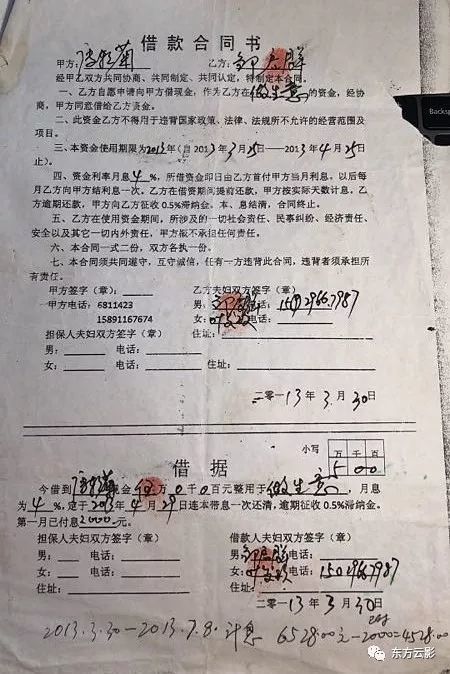 借款合同书
甲方： 乙方：
经甲乙双方共同协商、共同制定、共同认定，特制定本合同。
一、乙方自愿申请向甲方借现金，作为乙方在做生意的资金，经协
商，甲方同意借给乙方资金。
二、此资金乙方不得用于违背国家政策、法律、法规所不允许的经营范围及
项目。
三、本资金使用期限为2013年（自2013年3月25日——2013年4月25日
止）。
四、资金利率月息4%，所借资金即日由乙方首付甲方当月利息，以后每
月乙方向甲方结利息一次。乙方在借资期间提前还款，甲方按实际天数计息。乙
方逾期还款，甲方向乙方征收0.5%滞纳金。本、息结清，合同终止。
五、乙方在使用资金期间，所涉及的一切社会责任、民事纠纷、经济责任、
安全以及其它一切内外责任，甲方概不承担任何责任。
六、本合同一式二份，双方各执一份。
七、本合同须共同遵守，互守诚信，任有一方违背此合同，违背者须承担所
有责任。
甲方签字（章）： 乙方夫妇双方签字（章）
甲方电话：6811423 电话：15029667987
15891167674 女： 电话：
担保人夫妇双方签字（章） 住址：
男： 电话：
女： 电话： 住址：
二零一13年3月30日
小写 万 千 百
5 0 0
借 据
今借到 现金伍万0千0百元整用于做生意，月息
为4%，定于2013年4月29日连本带息一次还清，逾期征收0.5%滞纳金。
第一月已付息2000元。
担保人夫妇双方签字（章） 借款人夫妇双方签字（章）
男： 电话： 电话：
女： 电话： 电话：15029667987
住址： 住址：
二零一13年3月30日
2013.3.30—2013.7.8.计息 6528.00元-2000=4528.00
东方云影